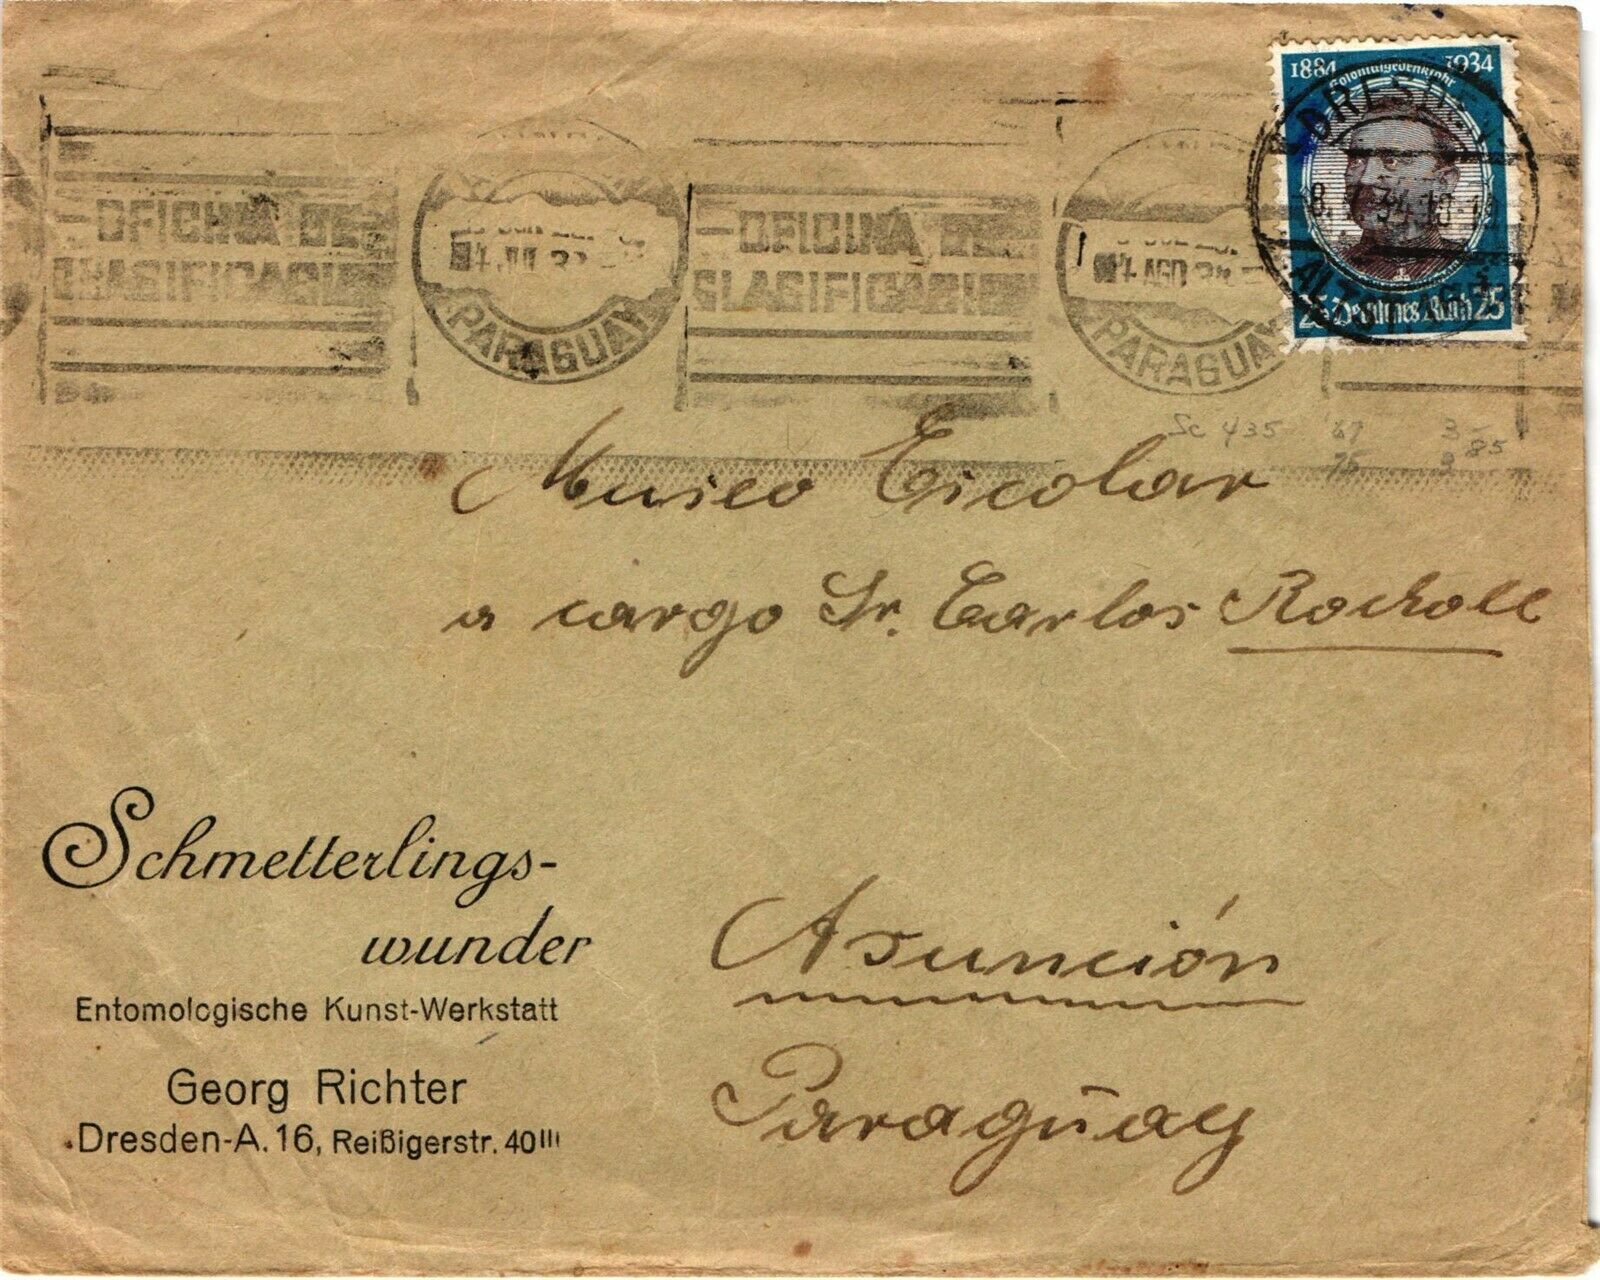 1884 1934
Kolonialgedenkjahr
25 Deutsches Reich 25
DRESDEN
ALTST. A
OFICINA DE
CLASIFICACI
PARAGUAY
OFICINA DE
CLASIFICACI
AGO 34
PARAGUAY
Sc 435 87 3-
75 3 85
Museo Escolar
a cargo Sr. Carlos Rocholl
Schmetterlings-
wunder
Entomologische Kunst-Werkstatt
Georg Richter
Dresden-A. 16, Reißigerstr. 40III
Asunción
Paraguay